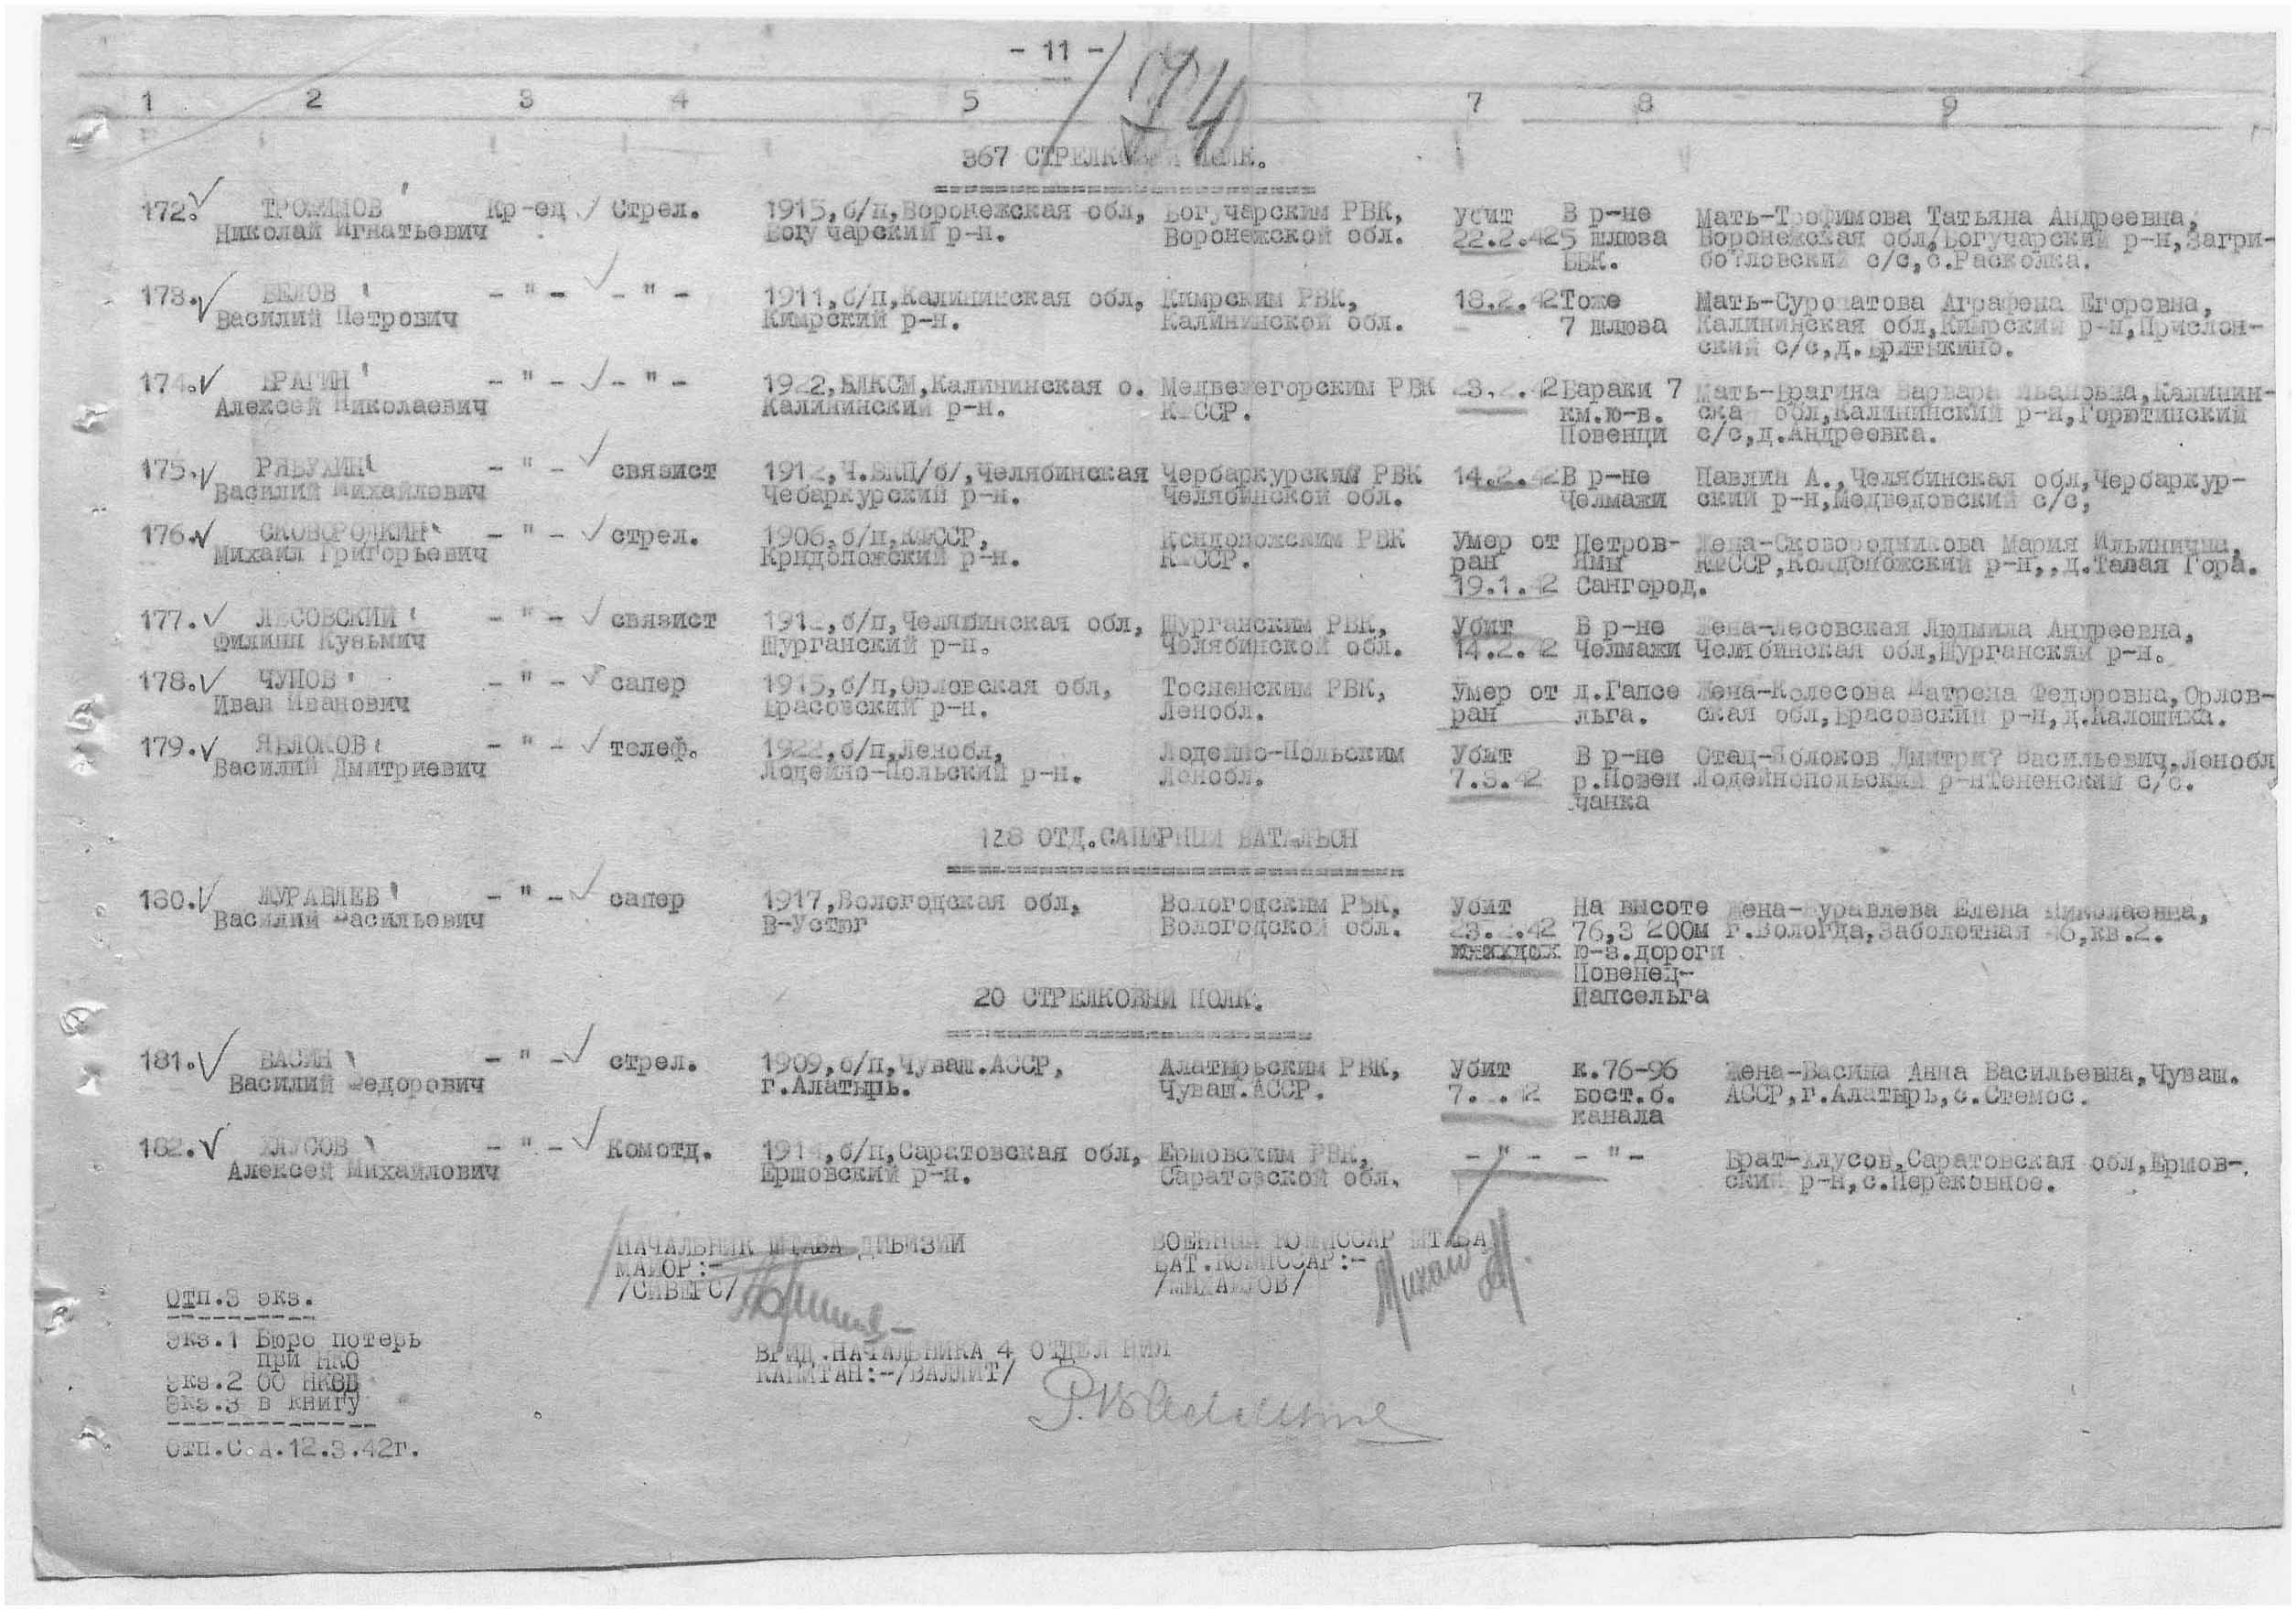 - 11 -
74
1 2 3 4 5 7 8 9
367 СТРЕЛКОВЫЙ ПОЛК.
172. ТРОФИМОВ Кр-ец Стрел. 1915,б/п,Воронежская обл, Богучарским РВК, убит В р-не Мать-Трофимова Татьяна Андреевна,
Николай Игнатьевич Богучарский р-н. Воронежской обл. 22.2.42 5 шлюза Воронежская обл,Богучарский р-н,Загри-
ББК. ботловский с/с,с.Расколка.
173. БЕЛОВ - " - - " - 1911,б/п,Калининская обл, Кимрским РВК, 18.2.42 Тоже Мать-Суропатова Аграфена Егоровна,
Василий Петрович Кимрский р-н. Калининской обл. 7 шлюза Калининская обл,Кимрский р-н,Прислон-
ский с/с,д.Бритыкино.
174. БРАГИН - " - - " - 1922,ВЛКСМ,Калининская о. Медвежегорским РВК 23. .42 Бараки 7 Мать-Брагина Варвара Ивановна,Калинин-
Алексей Николаевич Калининский р-н. КФССР. км.ю-в. ска обл,Калининский р-н,Горютинский
Повенци с/с,д.Андреевка.
175. РЯБУХИН - " - связист 1912,Ч.ВКП/б/,Челябинская Чербаркурским РВК 14.2.42 В р-не Павлин А.,Челябинская обл,Чербаркур-
Василий Михайлович Чебаркурский р-н. Челябинской обл. Челмажи ский р-н,Медведовский с/с,
176. СКОВОРОДКИН - " - стрел. 1906,б/п,КФССР, Кондоножским РВК Умер от Петров- Жена-Сковородникова Мария Ильинична,
Михаил Григорьевич Крндопожский р-н. КФССР. ран Ямы КФССР,Кондопожский р-н,,д.Талая Гора.
19.1.42 Сангород.
177. ЛЕСОВСКИЙ - " - связист 191 ,б/п,Челябинская обл, Шурганским РВК, Убит В р-не Жена-Лесовская Людмила Андреевна,
Филипп Кузьмич Шурганский р-н. Челябинской обл. 14.2.42 Челмажи Челябинская обл,Шурганский р-н.
178. ЧУПОВ - " - сапер 1915,б/п,Орловская обл, Тосненским РВК, Умер от д.Гапсе Жена-Колесова Матрена Федоровна,Орлов-
Иван Иванович Брасовский р-н. Ленобл. ран льга. ская обл,Брасовский р-н,д.Калошиха.
179. ЯБЛОКОВ - " - телеф. 1922,б/п,Ленобл, Лодейно-Польским Убит В р-не Отац-Яблоков Дмитри? Васильевич,Ленобл
Василий Дмитриевич Лодейно-Польский р-н. Ленобл. 7.3.42 р.Повен Лодейнопольский р-нТененский с/с.
чанка
128 ОТД.САПЕРНЫЙ БАТАЛЬОН
180. ЖУРАВЛЕВ - " - сапер 1917,Вологодская обл, Вологодским РВК, Убит На высоте Жена-Журавлева Елена Николаевна,
Василий Васильевич В-Устюг Вологодской обл. 23.2.42 76,3 200м г.Вологда,Заболотная 46,кв.2.
ю-з.дороги
Повенец-
Папсельга
20 СТРЕЛКОВЫЙ ПОЛК.
181. ВАСИН - " - стрел. 1909,б/п,Чуваш.АССР, Алатырьским РВК, Убит к.76-96 Жена-Васина Анна Васильевна,Чуваш.
Василий Федорович г.Алатырь. Чуваш.АССР. 7. .42 вост.б. АССР,г.Алатырь,с.Стемос.
канала
182. ХЛУСОВ - " - Комотд. 1914,б/п,Саратовская обл, Ершовским РВК, - " - - " - Брат-Хлусов,Саратовская обл,Ершов-
Алексей Михайлович Ершовский р-н. Саратовской обл. ский р-н,с.Перекопное.
НАЧАЛЬНИК ШТАБА ДИВИЗИИ ВОЕННЫЙ КОМИССАР ШТАБА
МАЙОР:- БАТ.КОМИССАР:-
/СИВЕРС/ /МИХАЙЛОВ/
ВРИД.НАЧАЛЬНИКА 4 ОТДЕЛЕНИЯ
КАПИТАН:-/ВАЛЛИТ/
Отп.3 экз.
Экз.1 Бюро потерь
при НКО
Экз.2 ОО НКВД
Экз.3 в книгу
Отп.С.А.12.3.42г.